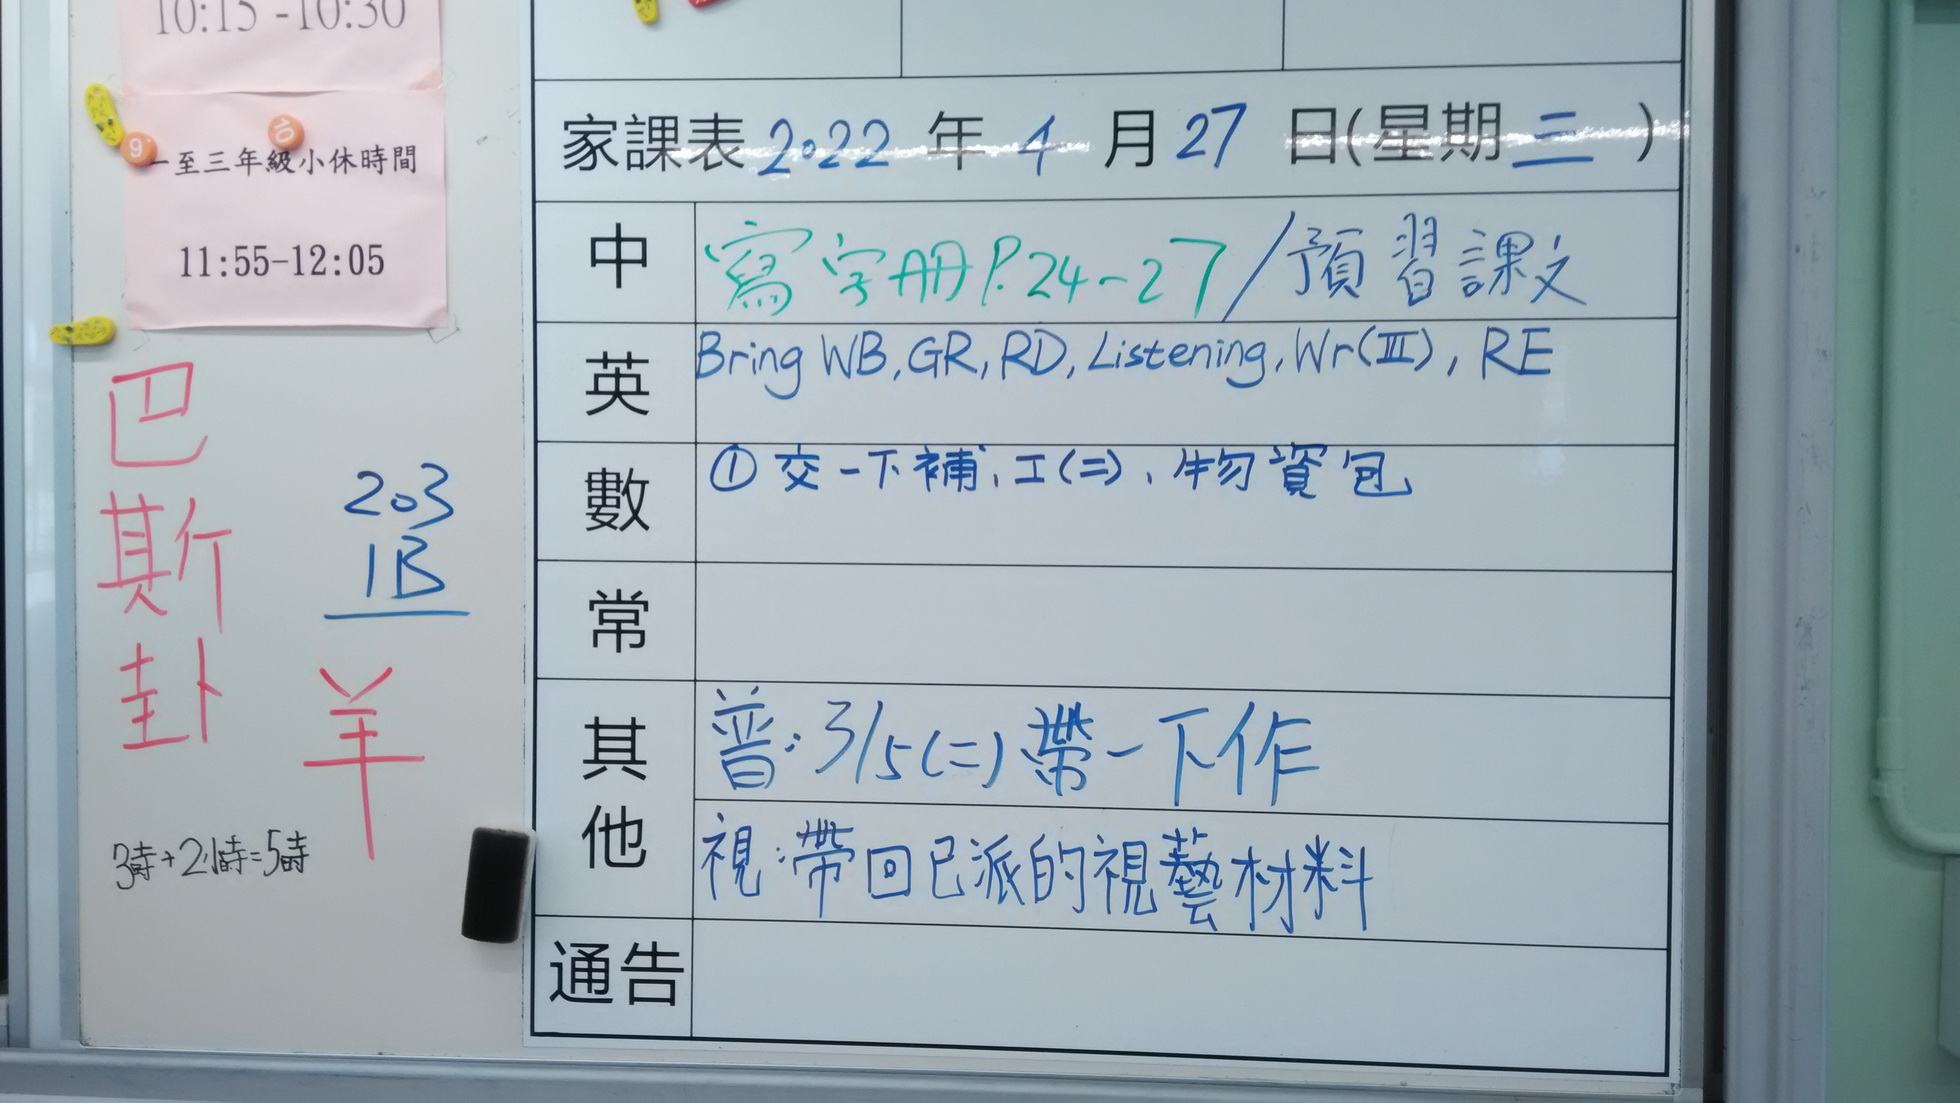 10:15-10:30
9
10
一至三年級小休時間
11:55-12:05
巴斯卦
203
1B
羊
3時+2小時=5時
家課表2022年4月27日(星期三)
中 寫字册P.24-27/預習課文
英 Bring WB, GR, RD, Listening, Wr(III), RE
數 ① 交一下補、工(二)、物資包
常
其他 普:3/5(二)帶一下作
視:帶回已派的視藝材料
通告